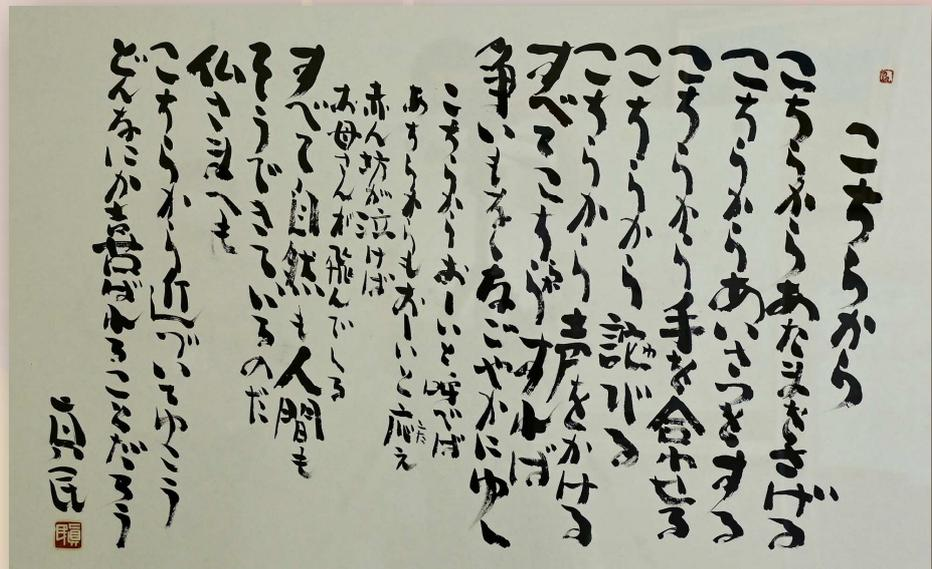 こちらから
こちらからあたまをさげる
こちらからあいさつをする
こちらから手を合わせる
こちらから詑びる
こちらから声をかける
すべてこちらからすれば
争いもなくなごやかにゆく
こちらからおーいと呼べば
あちらからもおーいと応え
赤ん坊が泣けば
お母さんが飛んでくる
すべて自然も人間も
そうできているのだ
仏さまへも
こちらから近づいてゆこう
どんなにか喜ばれることだろう
真民